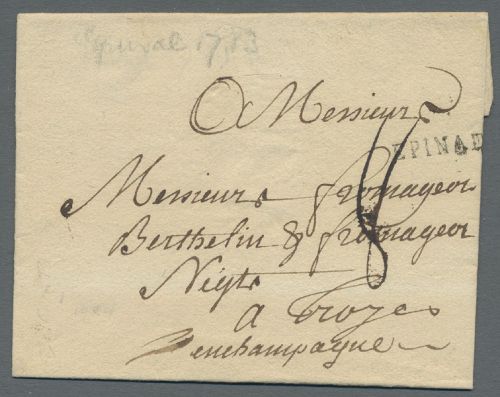 Epinal 1783
A Messieurs
EPINAL
Messieurs fromageor
Berthelin & fromageor
Négts
a Troyes
enchampagne
8